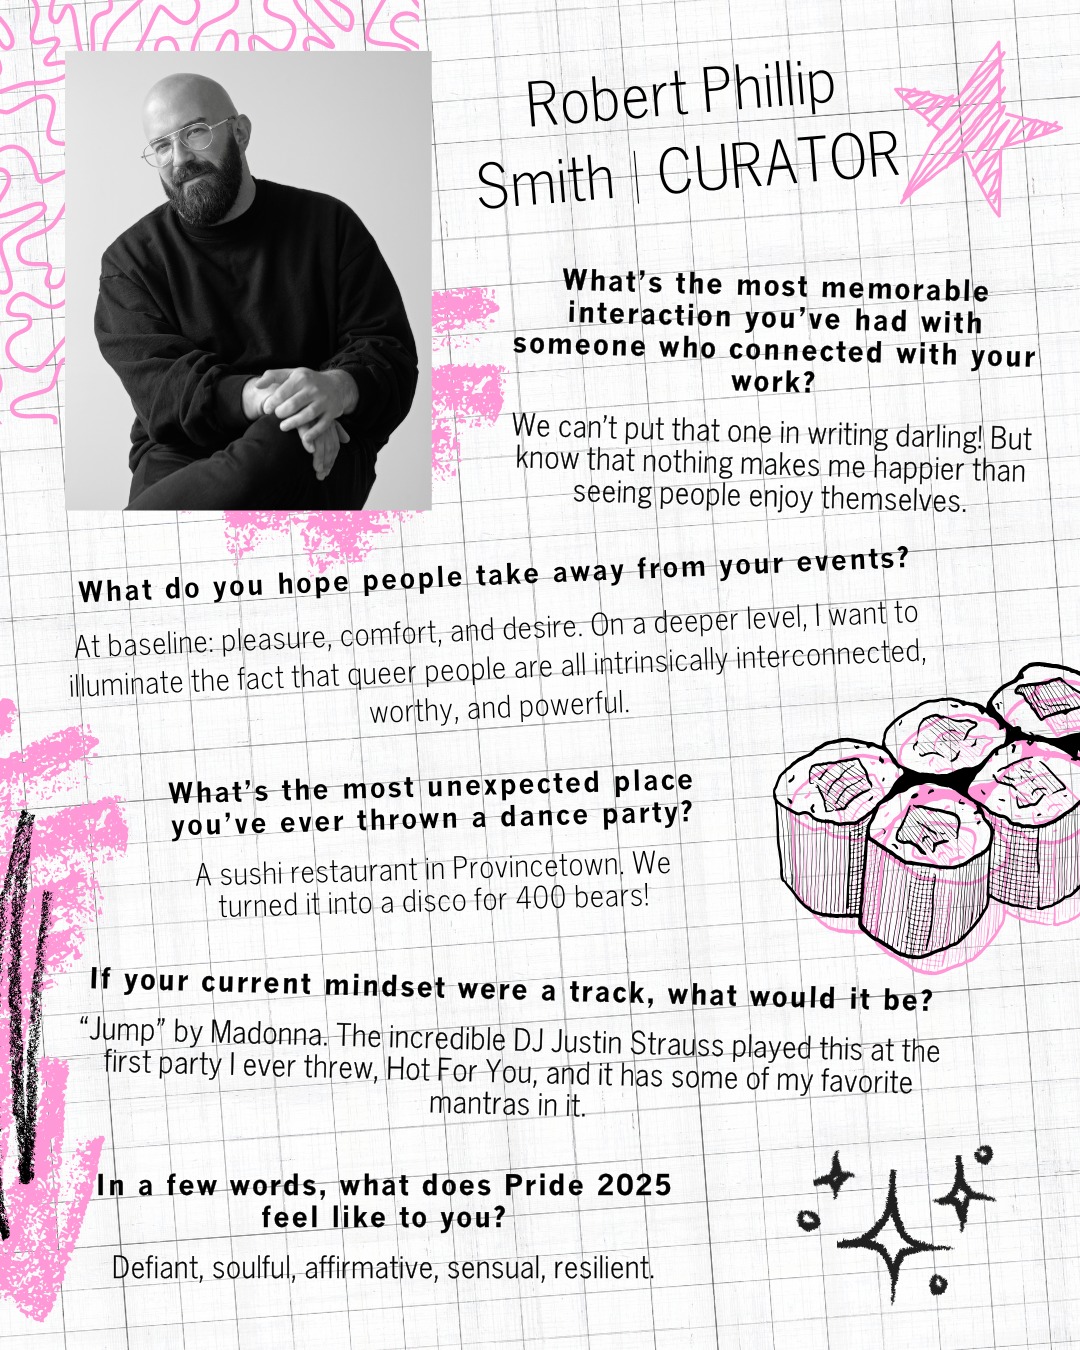 Robert Phillip
Smith | CURATOR
What's the most memorable
interaction you've had with
someone who connected with your
work?
We can't put that one in writing darling! But
know that nothing makes me happier than
seeing people enjoy themselves.
What do you hope people take away from your events?
At baseline: pleasure, comfort, and desire. On a deeper level, I want to
illuminate the fact that queer people are all intrinsically interconnected,
worthy, and powerful.
What's the most unexpected place
you've ever thrown a dance party?
A sushi restaurant in Provincetown. We
turned it into a disco for 400 bears!
If your current mindset were a track, what would it be?
“Jump” by Madonna. The incredible DJ Justin Strauss played this at the
first party I ever threw, Hot For You, and it has some of my favorite
mantras in it.
In a few words, what does Pride 2025
feel like to you?
Defiant, soulful, affirmative, sensual, resilient.